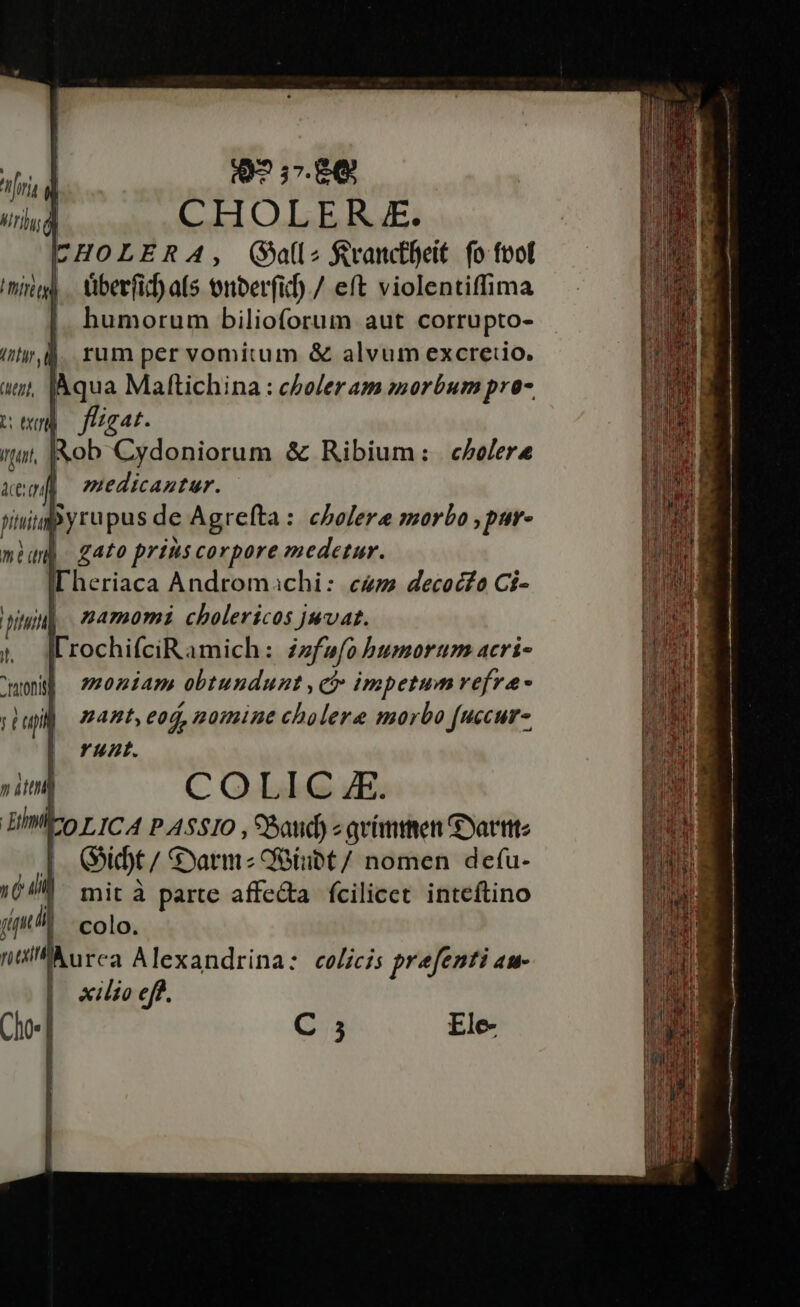 37.
CHOLERÆ.
CHOLERA, Gall-Kranckheit so wol
übersich als vndersich / est violentissima
humorum biliosorum aut corrupto-
rum per vomitum & alvum excretio.
Aqua Mastichina: choleram morbum pro-
fligat.
Rob Cydoniorum & Ribium: choleræ
medicantur.
Syrupus de Agresta: choleræ morbo, pur-
gato priùs corpore medetur.
Theriaca Andromachi: cùm decocto Ci-
namomi cholericos juvat.
Trochisci Ramich: infuso humorum acri-
moniam obtundunt, & impetum refræ-
nant, eoq; nomine choleræ morbo succur-
runt.
COLICÆ.
COLICA PASSIO, Bauch-grimmen Darm-
Gicht / Darm-Windt / nomen desu-
mit à parte affecta scilicet intestino
colo.
Aurea Alexandrina: colicis præsenti au-
xilio est.
C 3 Ele-
Cho-